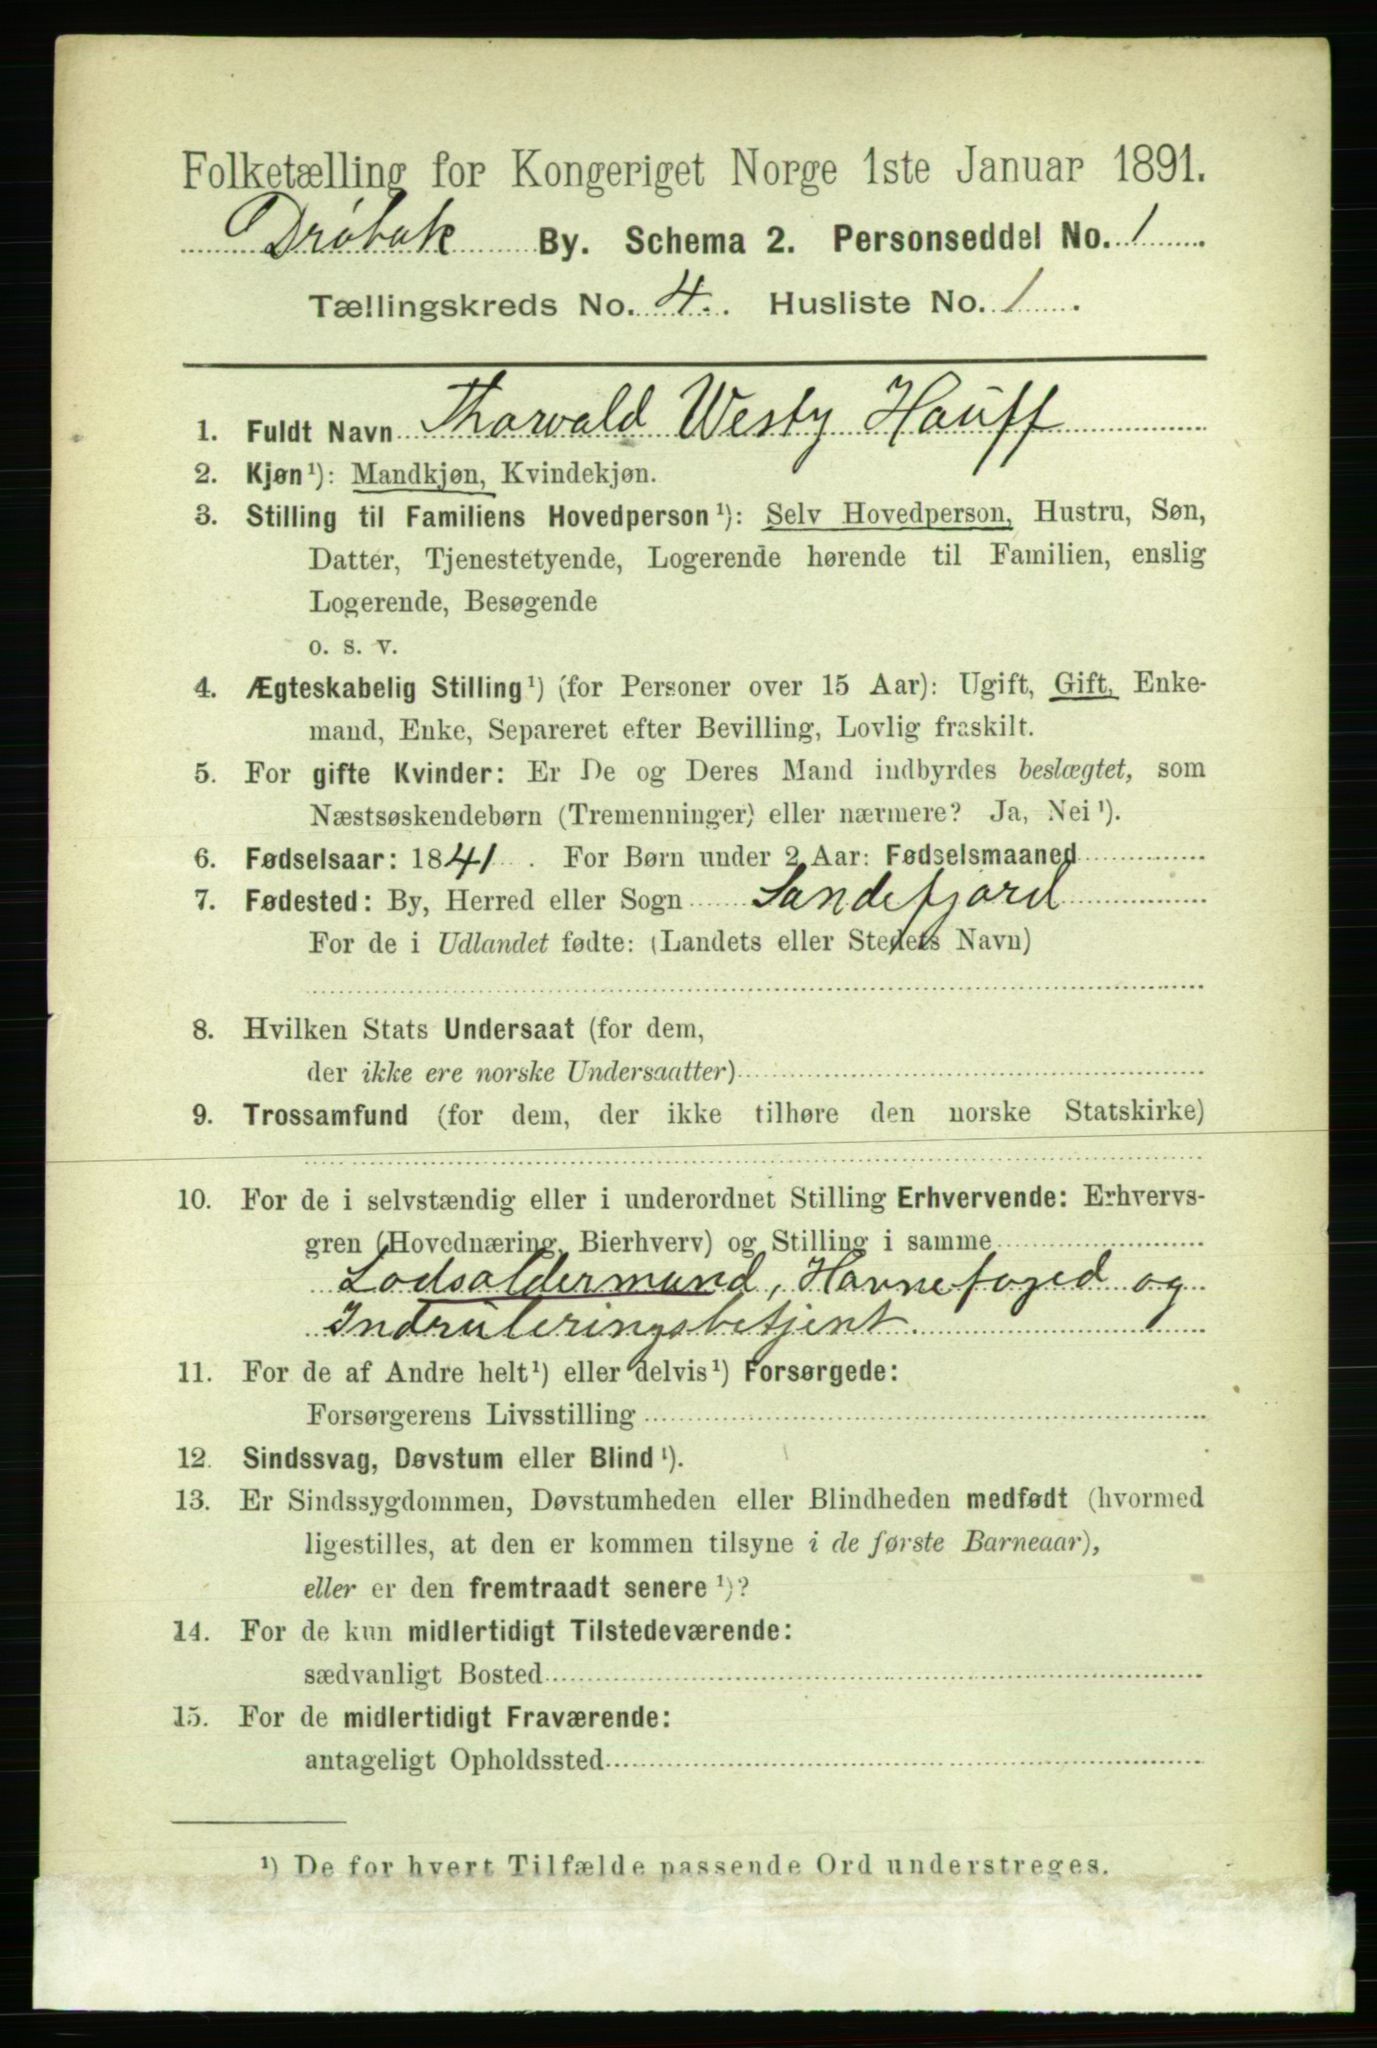 Folketælling for Kongeriget Norge 1ste Januar 1891.
Drøbak By. Schema 2. Personseddel No. 1.
Tællingskreds No. 4. Husliste No. 1.
1. Fuldt Navn Thorvald Westy Hauff
2. Kjøn¹): Mandkjøn, Kvindekjøn.
3. Stilling til Familiens Hovedperson¹): Selv Hovedperson, Hustru, Søn,
Datter, Tjenestetyende, Logerende hørende til Familien, enslig
Logerende, Besøgende
o. s. v.
4. Ægteskabelig Stilling¹) (for Personer over 15 Aar): Ugift, Gift, Enke-
mand, Enke, Separeret efter Bevilling, Lovlig fraskilt.
5. For gifte Kvinder: Er De og Deres Mand indbyrdes beslægtet, som
Næstsøskendebørn (Tremenninger) eller nærmere? Ja, Nei¹).
6. Fødselsaar: 1841. For Børn under 2 Aar: Fødselsmaaned
7. Fødested: By, Herred eller Sogn Sandefjord
For de i Udlandet fødte: (Landets eller Stedets Navn)
8. Hvilken Stats Undersaat (for dem,
der ikke ere norske Undersaatter)
9. Trossamfund (for dem, der ikke tilhøre den norske Statskirke)
10. For de i selvstændig eller i underordnet Stilling Erhvervende: Erhvervs-
gren (Hovednæring, Bierhverv) og Stilling i samme
Lodsoldermand, Havnefoged og
Indrulleringsbetjent
11. For de af Andre helt¹) eller delvis¹) Forsørgede:
Forsørgerens Livsstilling
12. Sindssvag, Døvstum eller Blind¹).
13. Er Sindssygdommen, Døvstumheden eller Blindheden medfødt (hvormed
ligestilles, at den er kommen tilsyne i de første Barneaar),
eller er den fremtraadt senere¹)?
14. For de kun midlertidigt Tilstedeværende:
sædvanligt Bosted
15. For de midlertidigt Fraværende:
antageligt Opholdssted
¹) De for hvert Tilfælde passende Ord understreges.